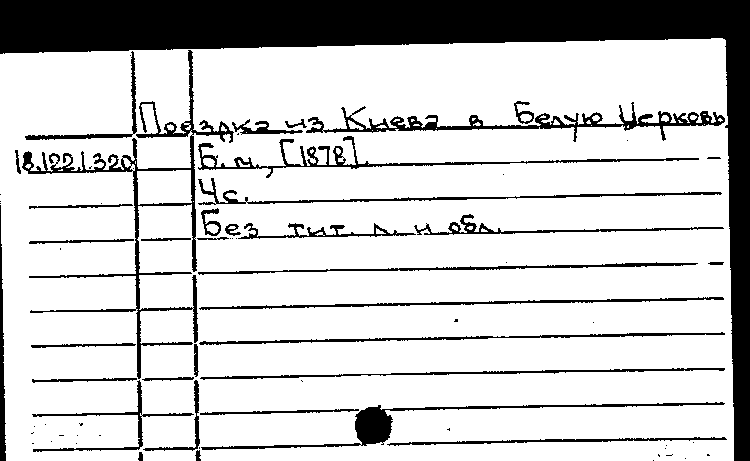 Поездка из Киева в Белую Церковь
18.122.1.320 Б. м., [1878].
4 с.
Без тит. л. и обл.